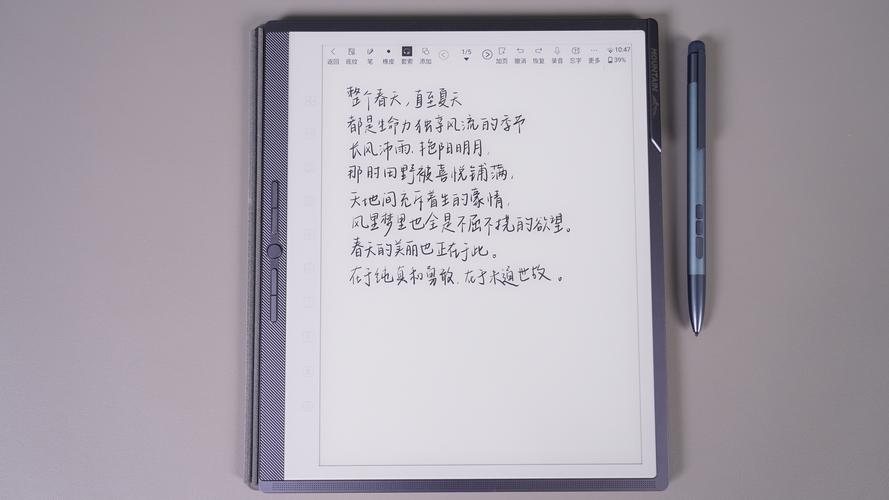 返回 底纹 笔 橡皮 套索 添加 1/5 加页 撤消 恢复 录音 忘字 更多 10:47 39%
MOUNTAIN
整个春天,直至夏天
都是生命力独享风流的季节
长风沛雨,艳阳明月,
那时田野被喜悦铺满,
天地间充斥着生的豪情,
风里梦里也全是不屈不挠的欲望。
春天的美丽也正在于此。
在于纯真和勇敢,在于未通世故。